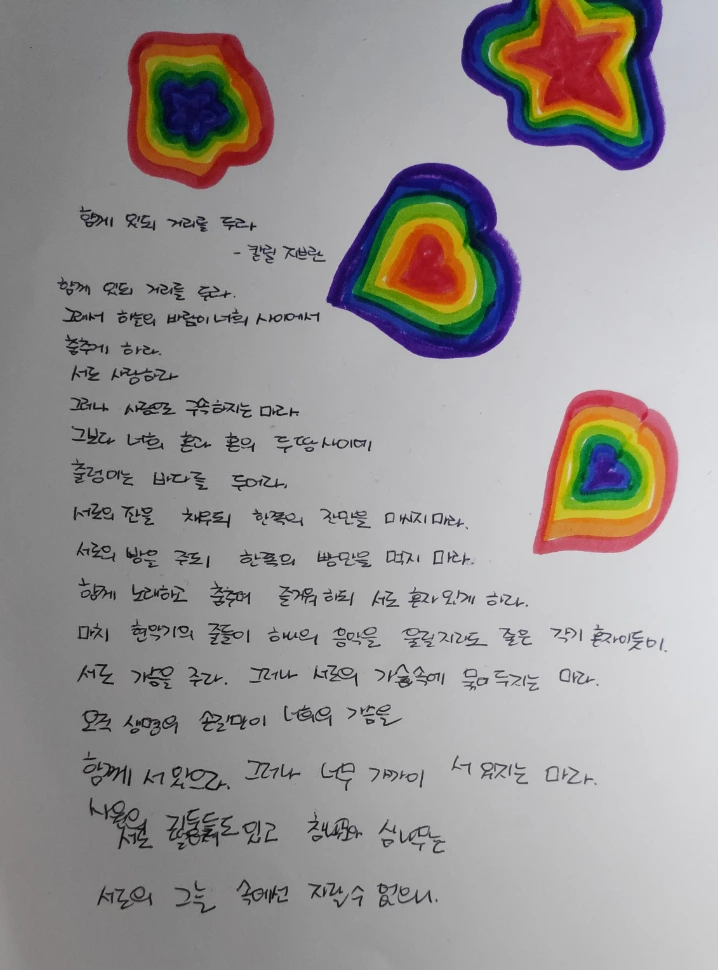 함께 있되 거리를 두라
- 칼릴 지브란
함께 있되 거리를 두라.
그래서 하늘의 바람이 너희 사이에서
춤추게 하라.
서로 사랑하라
그러나 사랑으로 구속하지는 마라.
그보다 너희 혼과 혼의 두 땅 사이에
출렁이는 바다를 두어라.
서로의 잔을 채우되 한쪽의 잔만을 마시지 마라.
서로의 빵을 주되 한쪽의 빵만을 먹지 마라.
함께 노래하고 춤추며 즐거워하되 서로 혼자 있게 하라.
마치 현악기의 줄들이 하나의 음악을 울릴지라도 줄은 각기 혼자이듯이.
서로 가슴을 주라. 그러나 서로의 가슴속에 묶어 두지는 마라.
오직 생명의 손길만이 너희의 가슴을
함께 서 있으라. 그러나 너무 가까이 서 있지는 마라.
사원의
서로 있고 참나무와 삼나무는
서로의 그늘 속에선 자랄 수 없으니.